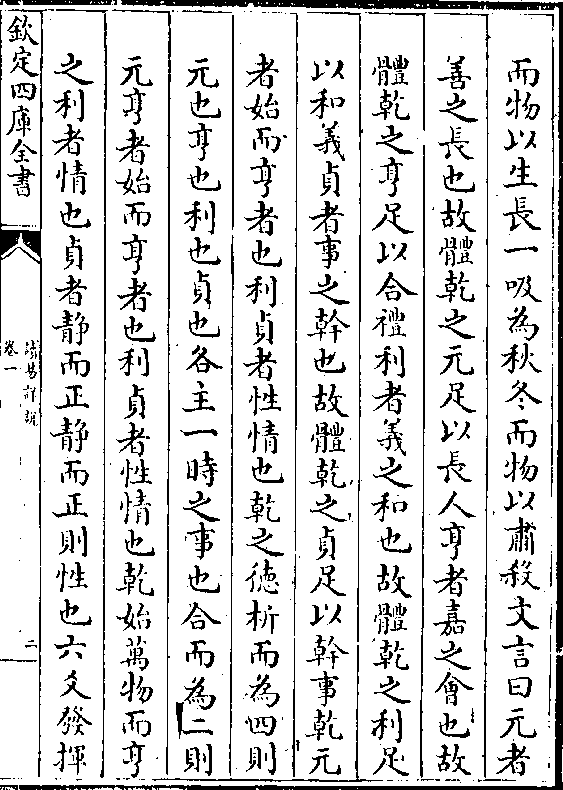 而物以生長一吸為秋冬而物以肅殺文言曰元者
善之長也故體乾之元足以長人亨者嘉之會也故
體乾之亨足以合禮利者義之和也故體乾之利足
以和義貞者事之幹也故體乾之貞足以幹事乾元
者始而亨者也利貞者性情也乾之德析而為四則
元也亨也利也貞也各主一時之事也合而為二則
元亨者始而亨者也利貞者性情也乾始萬物而亨
之利者情也貞者静而正静而正則性也六爻發揮
欽定四庫全書
讀易詳說
卷一
二